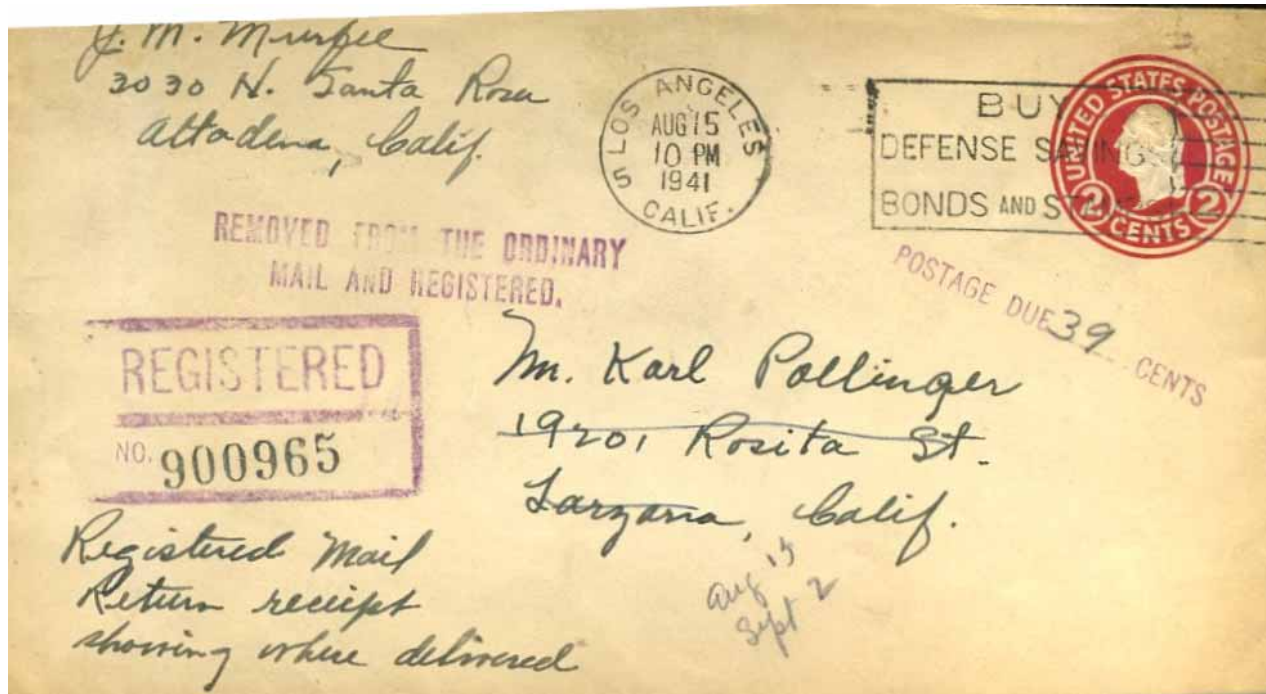 J. M. Murfee
3030 N. Santa Rosa
Altadena, Calif.
LOS ANGELES
AUG 15
10 PM
1941
5 CALIF.
BUY
DEFENSE SAVINGS
BONDS AND STAMPS
UNITED STATES POSTAGE
2 CENTS 2
REMOVED FROM THE ORDINARY
MAIL AND REGISTERED.
POSTAGE DUE 39 CENTS
REGISTERED
NO. 900965
Mr. Karl Pollinger
19201 Rosita St.
Tarzana, Calif.
Aug 15
Sept 2
Registered Mail
Return receipt
showing where delivered